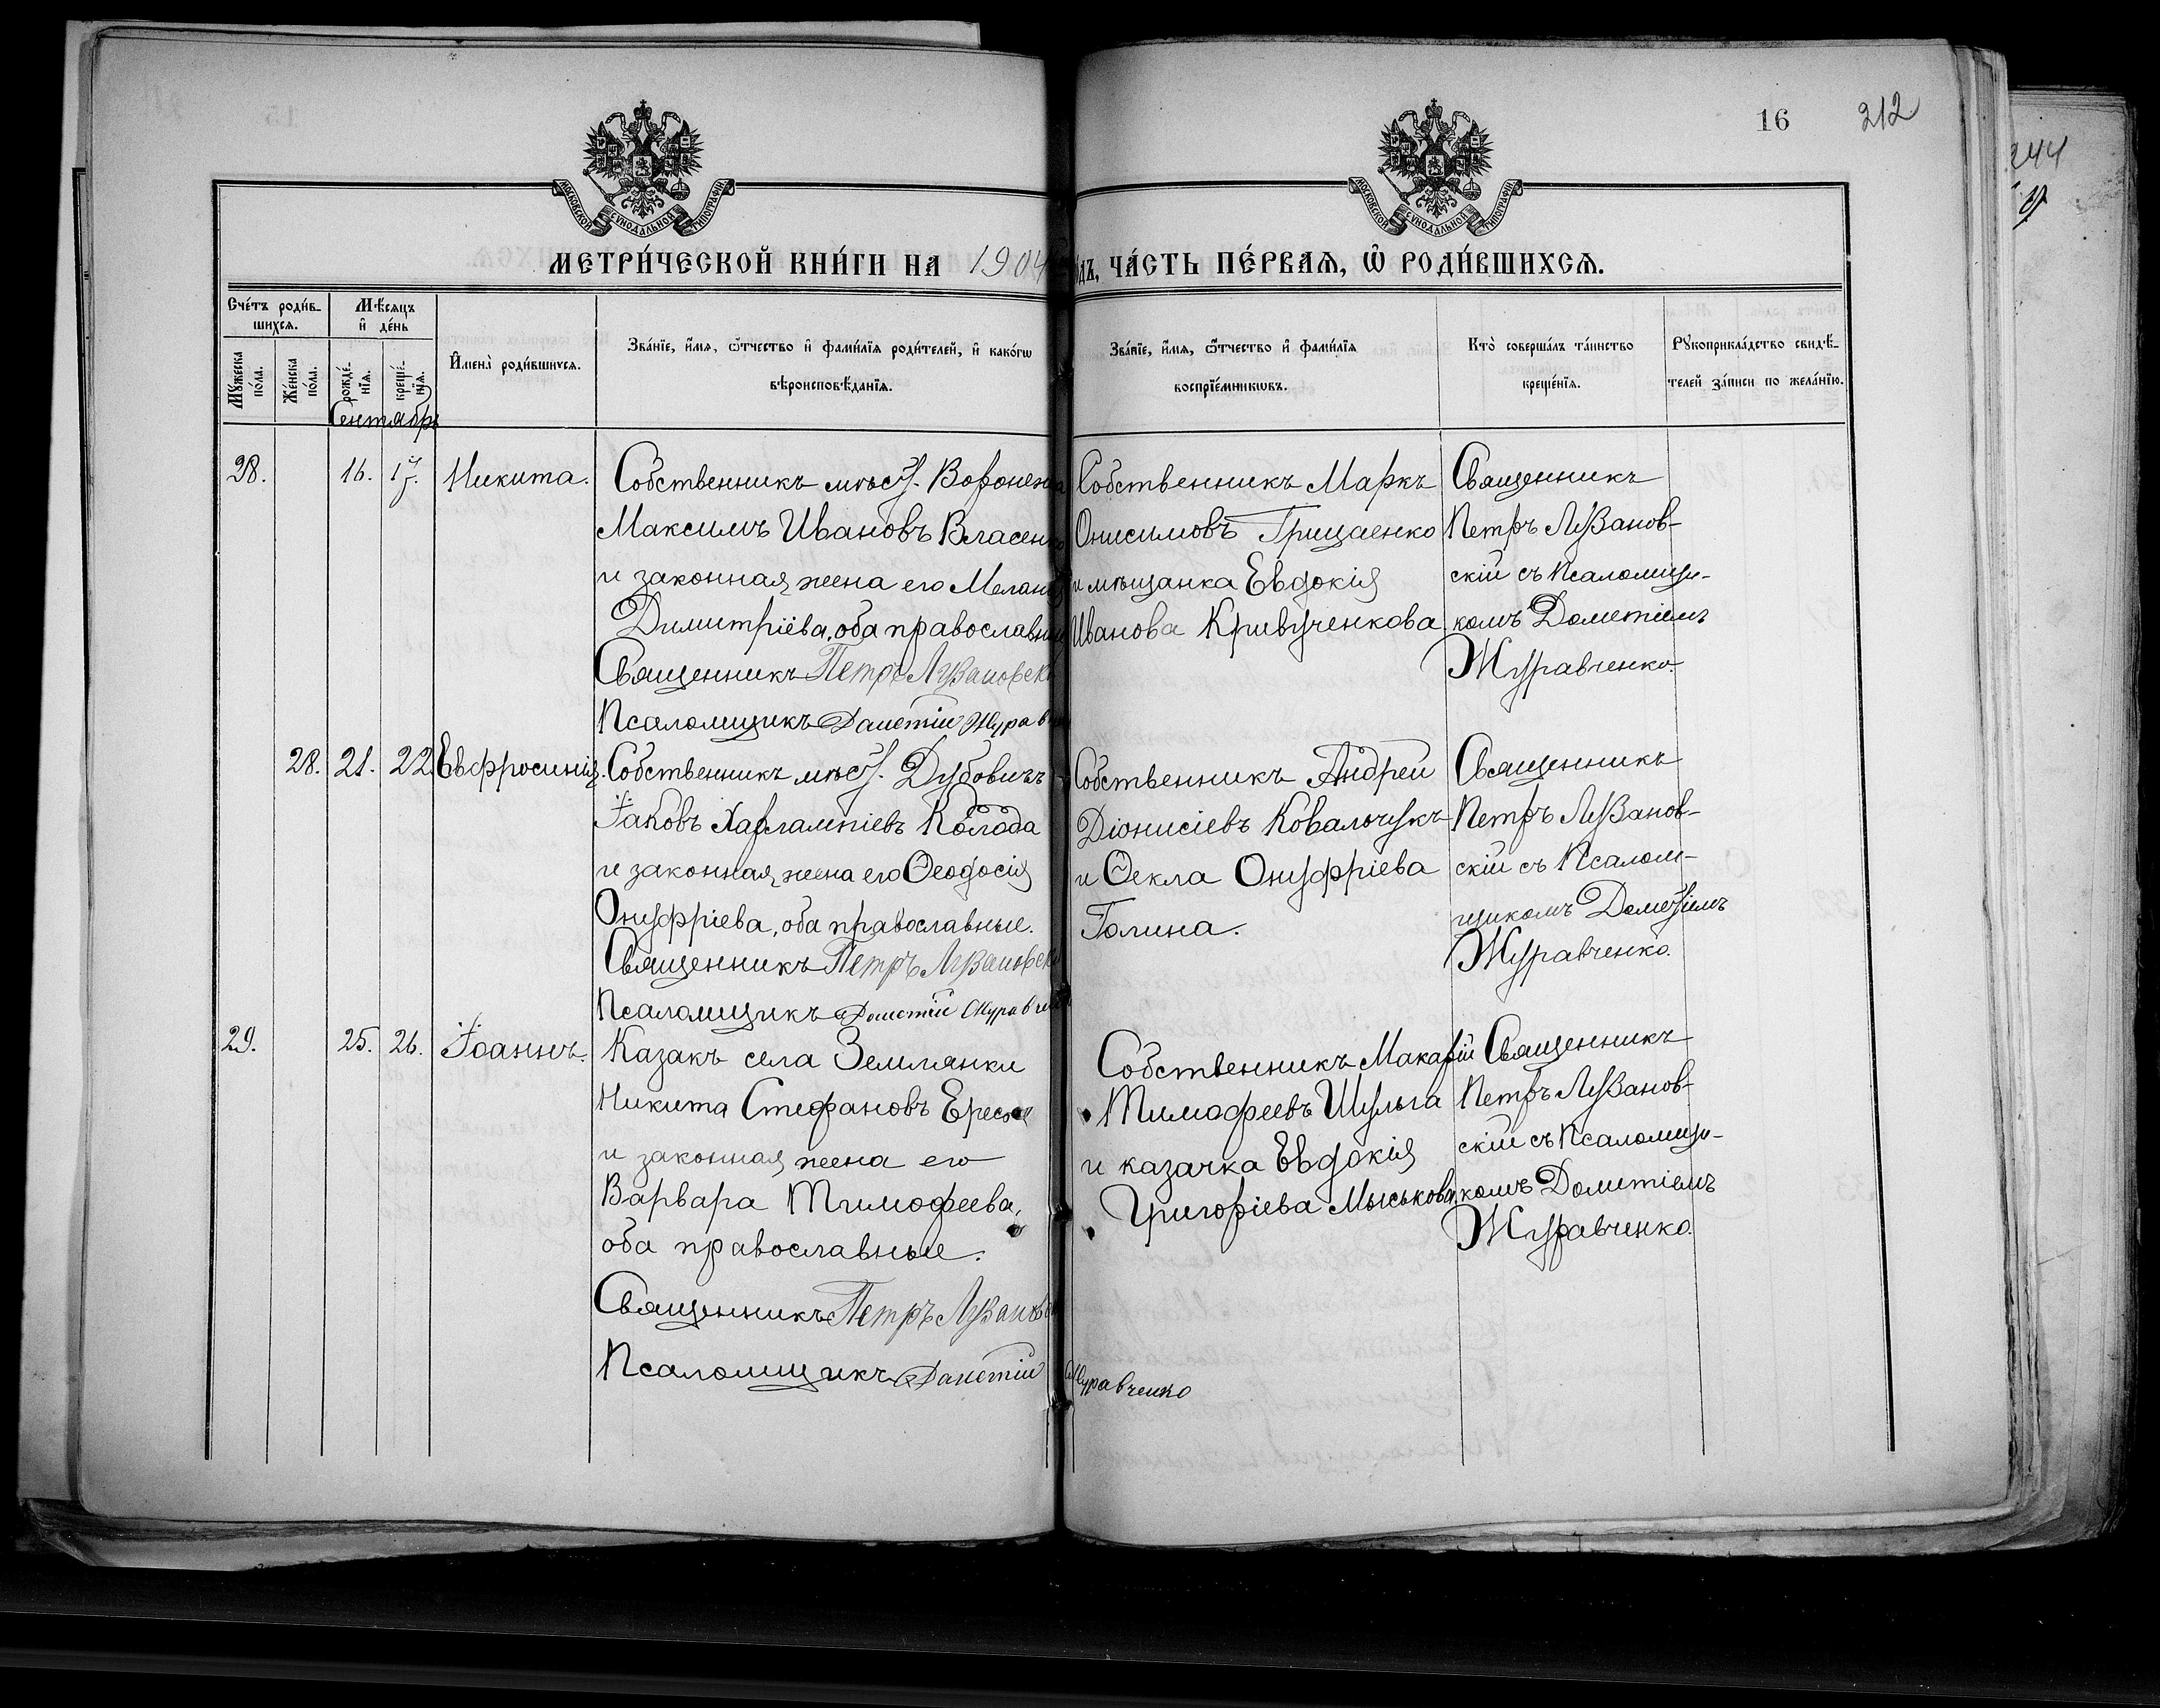 16 212
244
МОСКОВСКОЙ СѴНОДАЛЬНОЙ ТИПОГРАФІИ
МОСКОВСКОЙ СѴНОДАЛЬНОЙ ТИПОГРАФІИ
МЕТРИ́ЧЕСКОЙ КНИ́ГИ НА 1904
ЧА́СТЬ ПЕ́РВАЯ, Ѡ҆ РОДИ́ВШИХСЯ.
Сче́тъ роди́в-
шихся.
Мѣ́сяцъ
и҆ де́нь
Мꙋ́жеска
по́ла.
Же́нска
по́ла.
рожде́-
нїя.
креще́-
нїя.
И҆мена̀ роди́вшихся.
Зва́нїе, и҆́мя, ѻ҆́тчество и҆ фамі́лїя роди́телей, и҆ како́гѡ
вѣроисповѣ́данїя.
Зва́нїе, и҆́мя, ѻ҆́тчество и҆ фамі́лїя
воспрїе́мникѡвъ.
Кто̀ соверша́лъ та́инство
креще́нїя.
Рꙋкоприкла́дство свидѣ́-
телей за́писи по жела́нїю.
Сентябрь
28. 16. 17. Никита.
Собственникъ мѣст. Воронежа
Максимъ Ивановъ Власенко
и законная жена его Меланія
Димитріева, оба православные
Священникъ Петръ Лузановскі
Псаломщикъ Дометій Журавч
Собственникъ Маркъ
Онисимовъ Грицаенко
и мѣщанка Евдокія
Иванова Кривученкова
Священникъ
Петръ Лузанов-
скій съ Псаломщи-
комъ Дометіемъ
Журавченко.
28. 21. 22. Евфросинія.
Собственникъ мѣст. Дубовичъ
Іаковъ Харлампіевъ Колода
и законная жена его Ѳеодосія
Онуфріева, оба православные.
Священникъ Петръ Лузановск
Псаломщикъ Дометій Журавч
Собственникъ Андрей
Діонисіевъ Ковальчукъ
и Ѳекла Онуфріева
Галина.
Священникъ
Петръ Лузанов-
скій съ Псалом-
щикомъ Дометіемъ
Журавченко.
29. 25. 26. Іоаннъ.
Казакъ села Землянки
Никита Стефановъ
и законная жена его
Варвара Тимофеева,
оба православные.
Священникъ Петръ Лузановск
Псаломщикъ Дометій Журавченко
Собственникъ Макарій
Тимофеевъ Шульга
и казачка Евдокія
Григоріева Мыськова
Священникъ
Петръ Лузанов-
скій съ Псаломщи-
комъ Дометіемъ
Журавченко.